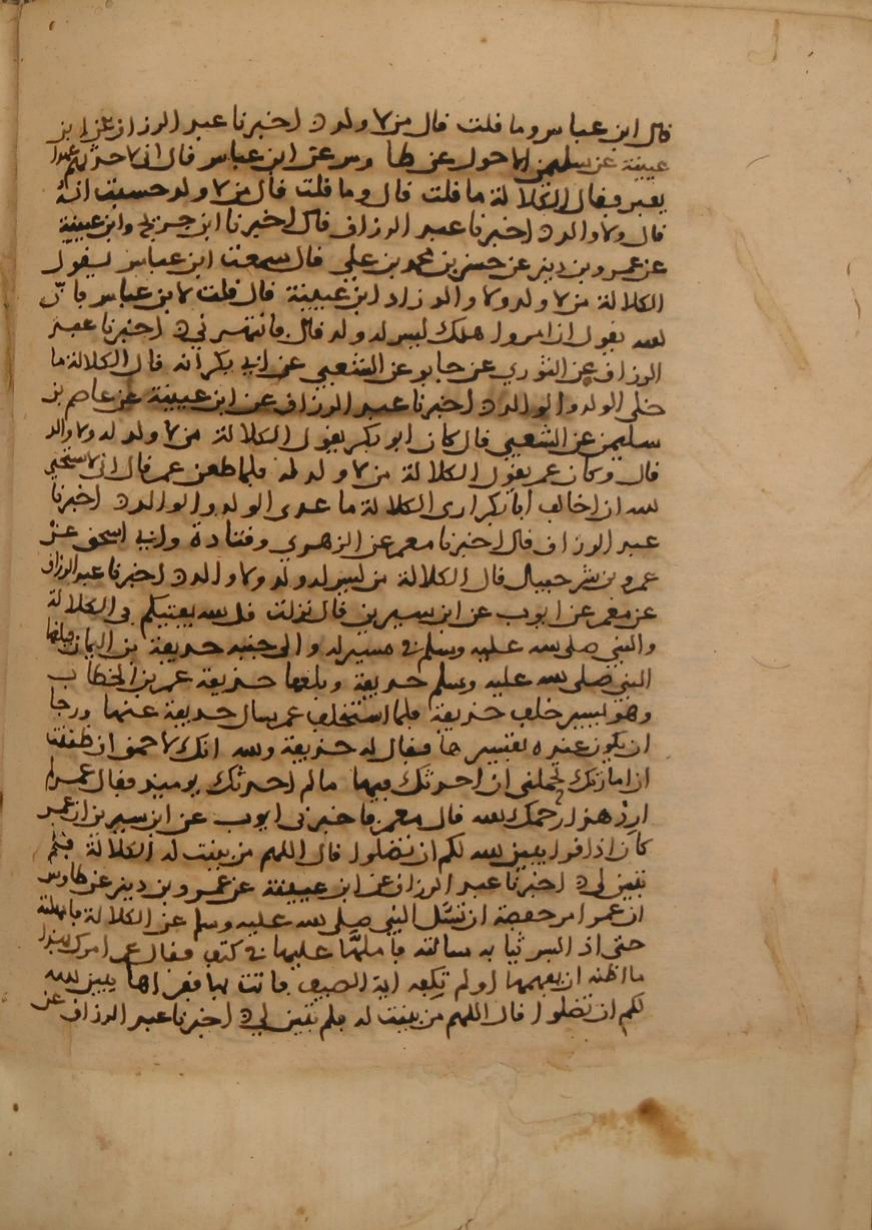 قال ابن عباس وما قلت قال من لا ولد له اخبرنا عبد الرزاق عن ابن
عيينة عن سليمن الاحول عن طاوس عن ابن عباس قال اني لاحدثهم عهدا
بعمر فقال الكلالة ما قلت قال وما قلت قال من لا ولد حسبت انه
قال ولا والد اخبرنا عبد الرزاق قال اخبرنا ابن جريج وابن عيينة
عن عمرو بن دينر عن حسن بن محمد بن علي قال سمعت ابن عباس يقول
الكلالة من لا ولد ولا والد زاد ابن عيينة قال قلت لابن عباس فان
الله يقول ان امروا هلك ليس له ولد قال فانتهرني اخبرنا عبد
الرزاق عن الثوري عن جابر عن الشعبي عن ابي بكر انه قال الكلالة ما
خلى الولد والوالد اخبرنا عبد الرزاق عن ابن عيينة عن عاصم بن
سليمن عن الشعبي قال كان ابو بكر يقول الكلالة من لا ولد له ولا والد
قال وكان عمر يقول الكلالة من لا ولد له فلما طعن عمر قال اني لاستحيي
الله ان اخالف ابا بكر ارى الكلالة ما عدى الولد والوالد اخبرنا
عبد الرزاق قال اخبرنا معمر عن الزهري وقتادة وابي اسحق عن
عمرو بن شرحبيل قال الكلالة من ليس له ولد ولا والد اخبرنا عبد الرزاق
عن معمر عن ايوب عن ابن سيرين قال نزلت قل الله يفتيكم في الكلالة
والنبي صلى الله عليه وسلم في مسير له والى جنبه حذيفة بن اليمان فبلغها
النبي صلى الله عليه وسلم حذيفة وبلغها حذيفة عمر بن الخطاب
وهو يسير خلف حذيفة فلما استخلف عمر سال حذيفة عنها ورجا
ان يكون عنده تفسيرها فقال له حذيفة والله انك لاحمق ان ظننت
ان امارتك تحملني ان احدثك فيها ما لم احدثك يوميذ فقال عمر لم
ارد هذا رحمك الله قال معمر فاخبرني ايوب عن ابن سيرين ان عمر
كان اذا قرا يبين الله لكم ان تضلوا قال اللهم من بينت له الكلالة فلم
تبين لي اخبرنا عبد الرزاق عن ابن عيينة عن عمرو بن دينر عن طاوس
ان عمر امر حفصة ان تسئل النبي صلى الله عليه وسلم عن الكلالة فامهلته
حتى اذا لبس ثيابه سالته فاملها عليها في كتف فقال عمر امرك بهذا
ما اظنه ان يفهمها اولم تكفه اية الصيف فاتت بها فقراها يبين الله
لكم ان تضلوا قال اللهم من بينت له فلم تبين لي اخبرنا عبد الرزاق عن